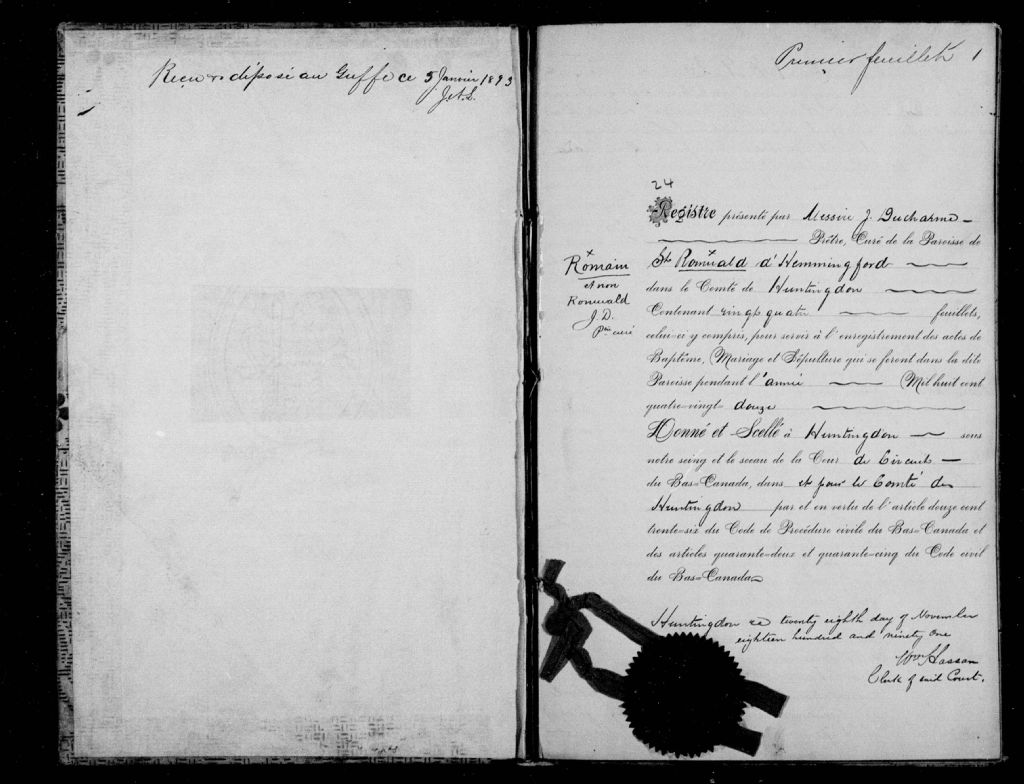 Reçu & déposé au Greffe ce 5 Janvier 1893
J.A.L.
Premier feuillet 1
24
Registre présenté par Messire J. Ducharme
Prêtre, Curé de la Paroisse de
St. Romuald d'Hemmingford
dans le Comté de Huntingdon
Contenant vingt quatre feuillets,
celui-ci y compris, pour servir à l'enregistrement des actes de
Baptême, Mariage et Sépulture qui se feront dans la dite
Paroisse pendant l'année Mil huit cent
quatre-vingt douze
Donné et Scellé à Huntingdon sous
notre seing et le sceau de la Cour de Circuit
du Bas-Canada, dans et pour le Comté de
Huntingdon par et en vertu de l'article douze cent
trente-six du Code de Procédure civile du Bas-Canada et
des articles quarante-deux et quarante-cinq du Code civil
du Bas-Canada
x
Romain
et non
Romuald
J. D.
Ptre curé
Huntingdon ce twenty eighth day of November
eighteen hundred and ninety one
Clerk of said Court.